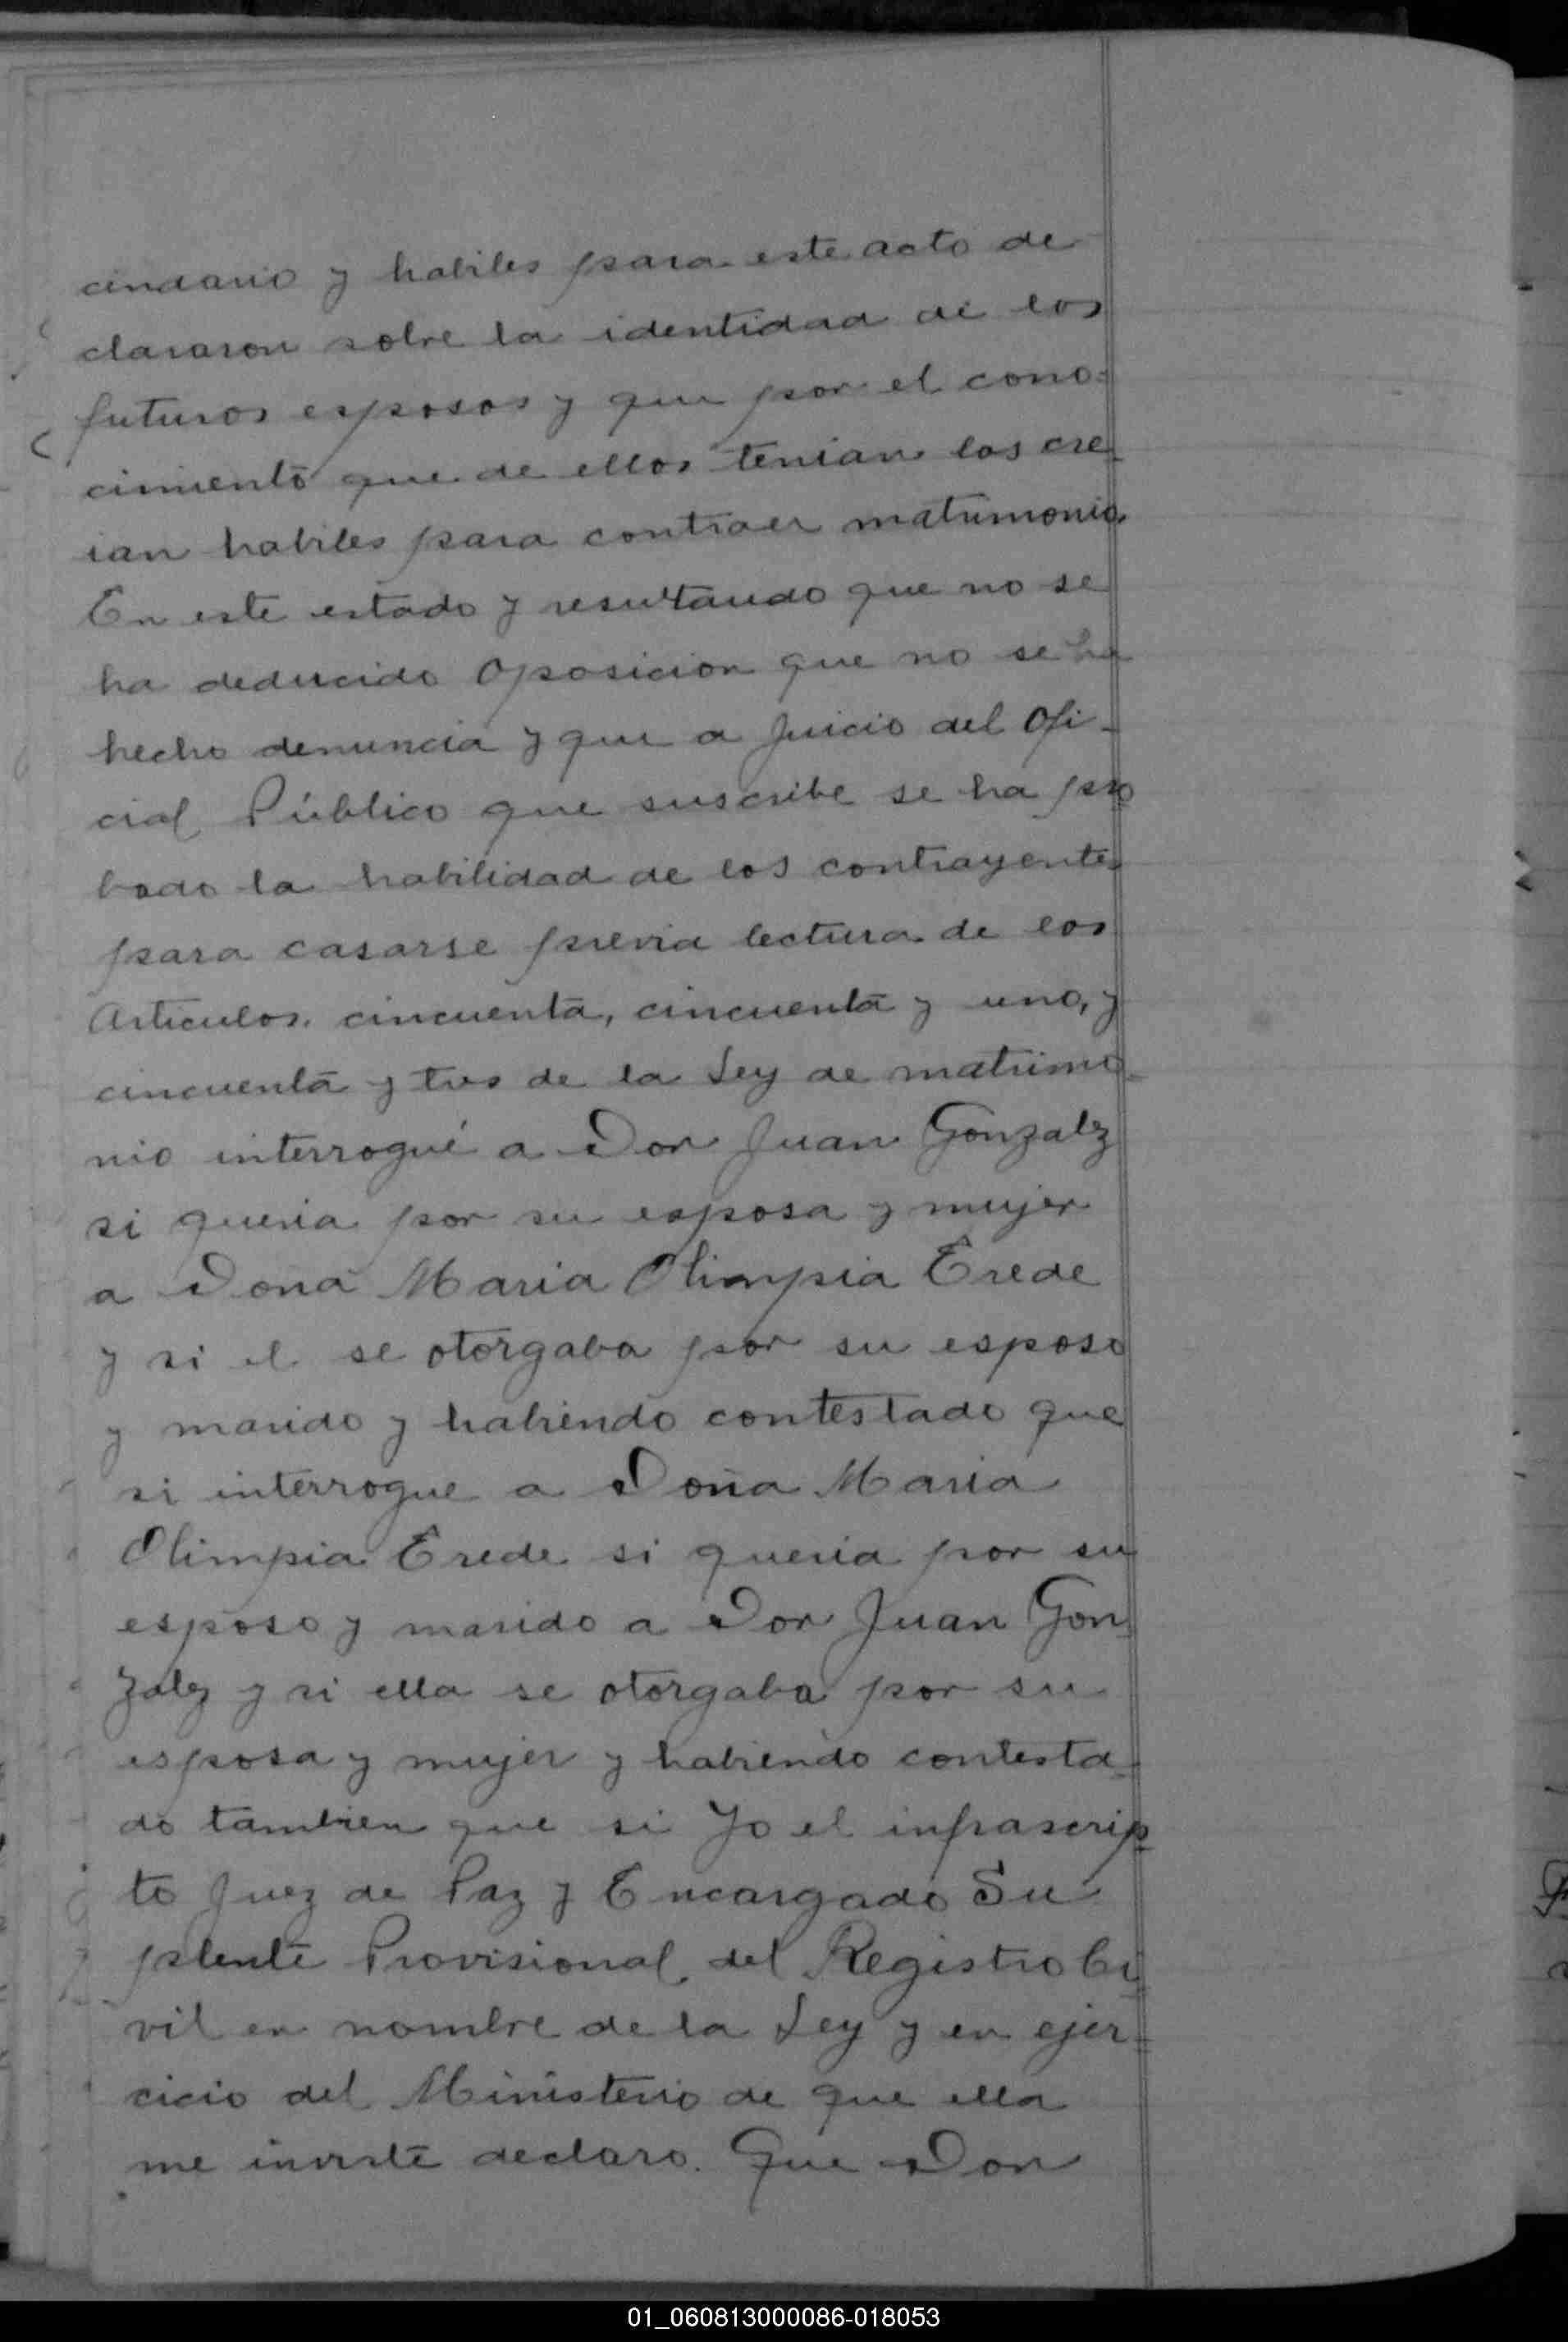 cindario y habiles para este acto de
clararon sobre la identidad de los
futuros esposos y que por el cono=
cimiento que de ellos tenian los cre_
ian habiles para contraer matrimonio
En este estado y resultando que no se
ha deducido oposicion que no se ha
hecho denuncia y que a juicio del Ofi_
cial Público que suscribe se ha pro
bado la habilidad de los contrayentes
para casarse previa lectura de los
Articulos. cincuenta, cincuenta y uno, y
cincuenta y tres de la Ley de matrimo_
nio interrogué a Don Juan Gonzalz
si queria por su esposa y mujer
a Dona Maria Olimpia Erede
y si el se otorgaba por su esposo
y marido y habiendo contestado que
si interrogue a Doña Maria
Olimpia Erede si queria por su
esposo y marido a Don Juan Gon_
zalz y si ella se otorgaba por su
esposa y mujer y habiendo contesta_
do tambien que si Yo el infrascrip_
to Juez de Paz y Encargado Su
plente Provisional del Registro Ci_
vil en nombre de la Ley y en ejer_
cicio del Ministerio de que ella
me inviste declaro. Que Don
01_060813000086-018053